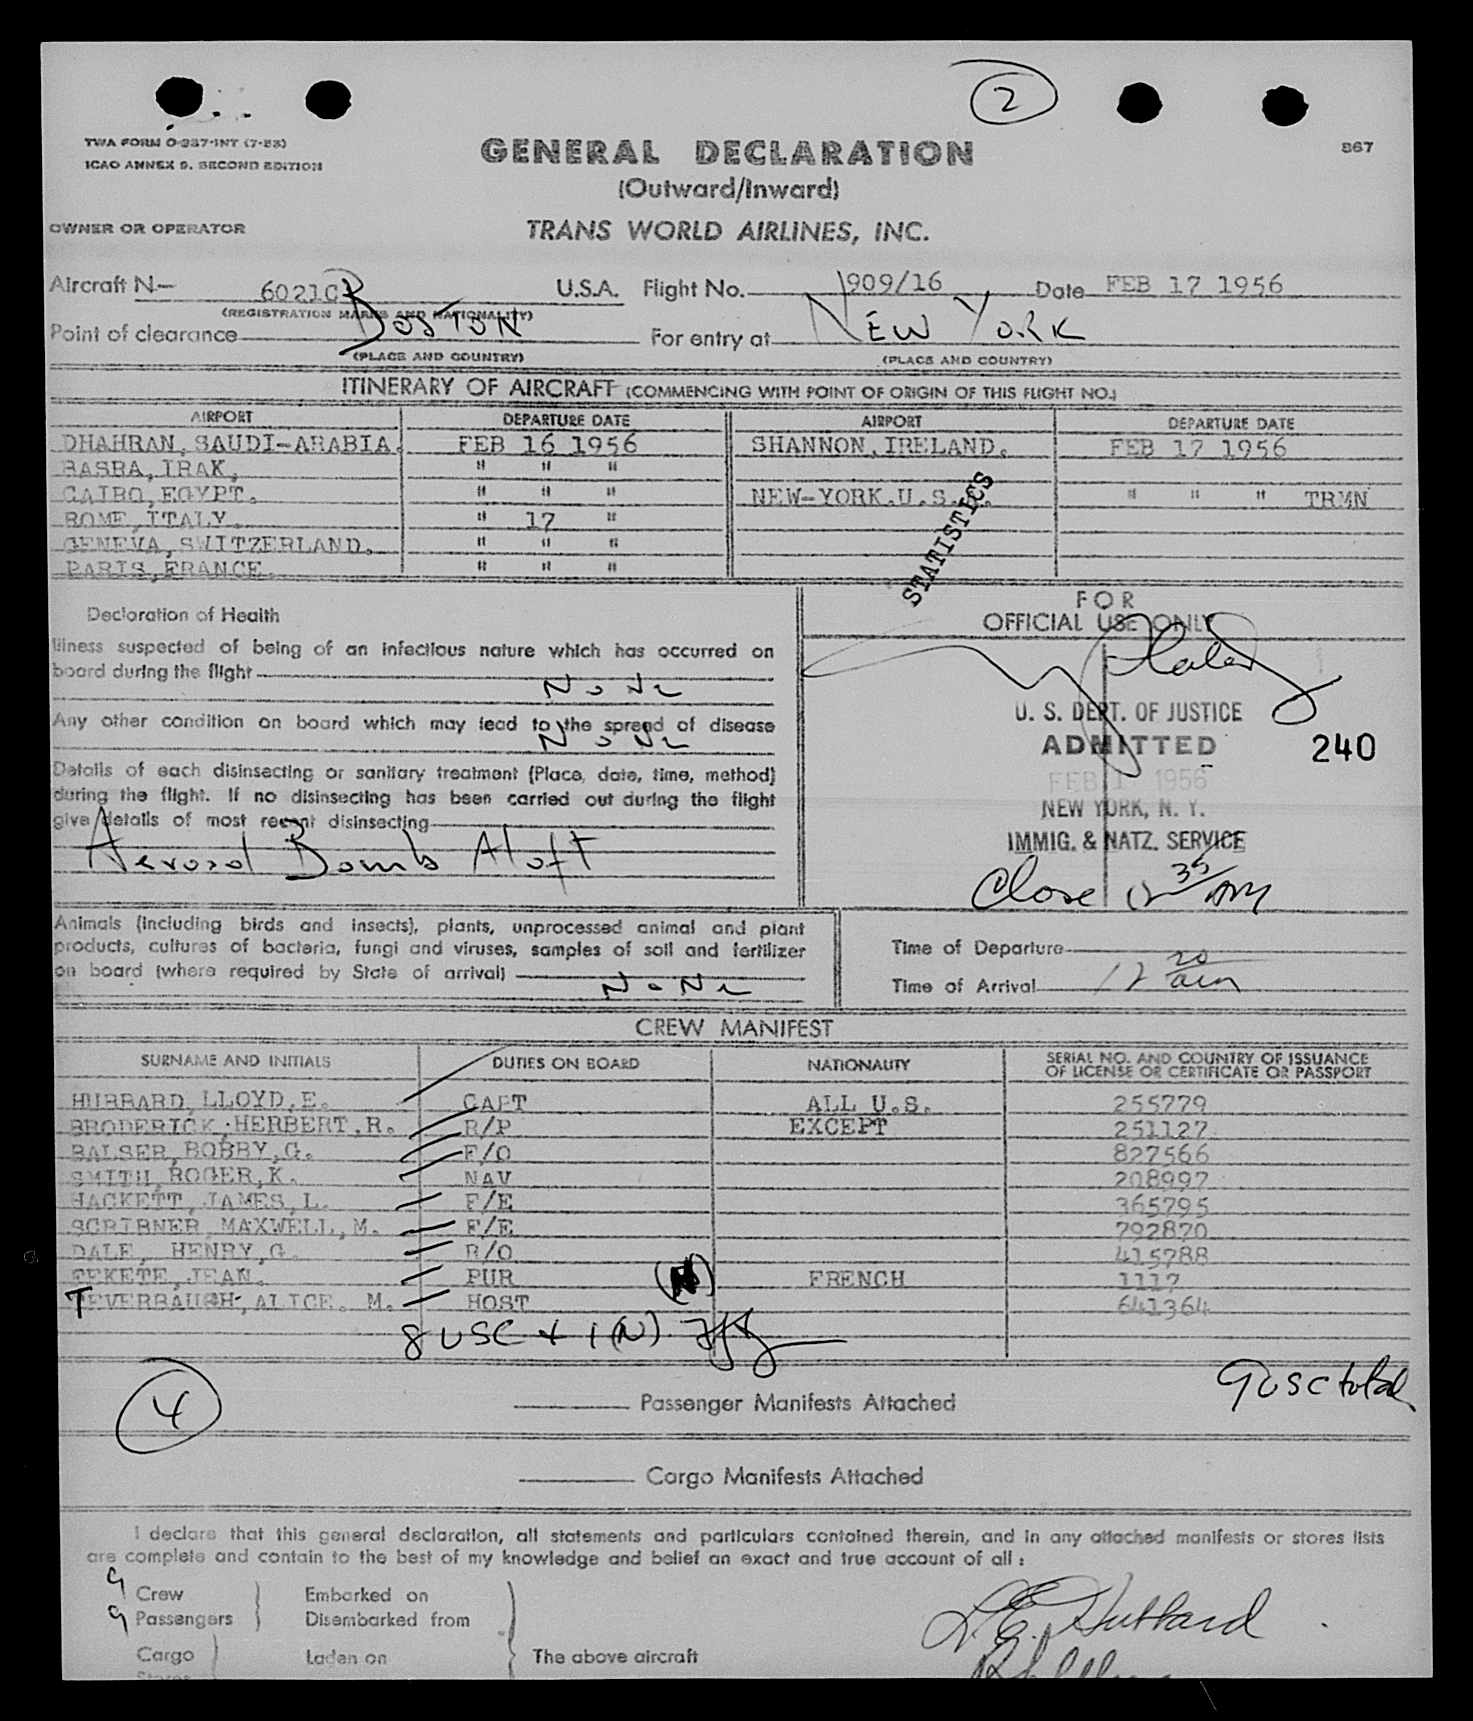 2
TWA FORM O-937-INT (7-53)
ICAO ANNEX 9, SECOND EDITION
GENERAL DECLARATION
867
(Outward/Inward)
OWNER OR OPERATOR
TRANS WORLD AIRLINES, INC.
Aircraft N— 6021C U.S.A. Flight No. 909/16 Date FEB 17 1956
(REGISTRATION MARKS AND NATIONALITY)
Point of clearance BOSTON For entry at NEW YORK
(PLACE AND COUNTRY) (PLACE AND COUNTRY)
ITINERARY OF AIRCRAFT (COMMENCING WITH POINT OF ORIGIN OF THIS FLIGHT NO.)
AIRPORT DEPARTURE DATE AIRPORT DEPARTURE DATE
DHAHRAN, SAUDI-ARABIA. FEB 16 1956 SHANNON, IRELAND. FEB 17 1956
BASRA, IRAK, " " "
CAIRO, EGYPT. " " " NEW-YORK.U.S. " " " TRMN
ROME, ITALY. " 17 "
GENEVA, SWITZERLAND. " " "
PARIS, FRANCE. " " "
STATISTICS
Declaration of Health
Illness suspected of being of an infectious nature which has occurred on
board during the flight None
Any other condition on board which may lead to the spread of disease
None
Details of each disinsecting or sanitary treatment (Place, date, time, method)
during the flight. If no disinsecting has been carried out during the flight
give details of most recent disinsecting
Aerosol Bomb Aloft
FOR
OFFICIAL USE ONLY
U. S. DEPT. OF JUSTICE
ADMITTED
240
FEB 1 1956
NEW YORK, N. Y.
IMMIG. & NATZ. SERVICE
Close 12 35 AM
Animals (including birds and insects), plants, unprocessed animal and plant
products, cultures of bacteria, fungi and viruses, samples of soil and fertilizer
on board (where required by State of arrival) None
Time of Departure
Time of Arrival 12 20 am
CREW MANIFEST
SURNAME AND INITIALS DUTIES ON BOARD NATIONALITY SERIAL NO. AND COUNTRY OF ISSUANCE
OF LICENSE OR CERTIFICATE OR PASSPORT
HUBBARD, LLOYD, E. CAPT ALL U.S. 255779
BRODERICK, HERBERT, R. R/P EXCEPT 251127
BALSER, BOBBY, G. F/O 827566
SMITH, ROGER, K. NAV 208997
HACKETT, JAMES, L. F/E 365795
SCRIBNER, MAXWELL, M. F/E 792870
DALE, HENRY, G. R/O 415788
FEKETE, JEAN. PUR (N) FRENCH 1117
TEVERBAUGH, ALICE. M. HOST 641364
8 USC + 1 (N)
9 USC total
4
Passenger Manifests Attached
Cargo Manifests Attached
I declare that this general declaration, all statements and particulars contained therein, and in any attached manifests or stores lists
are complete and contain to the best of my knowledge and belief an exact and true account of all :
9 Crew Embarked on
9 Passengers Disembarked from
L. E. Hubbard
Cargo Laden on The above aircraft
Stores